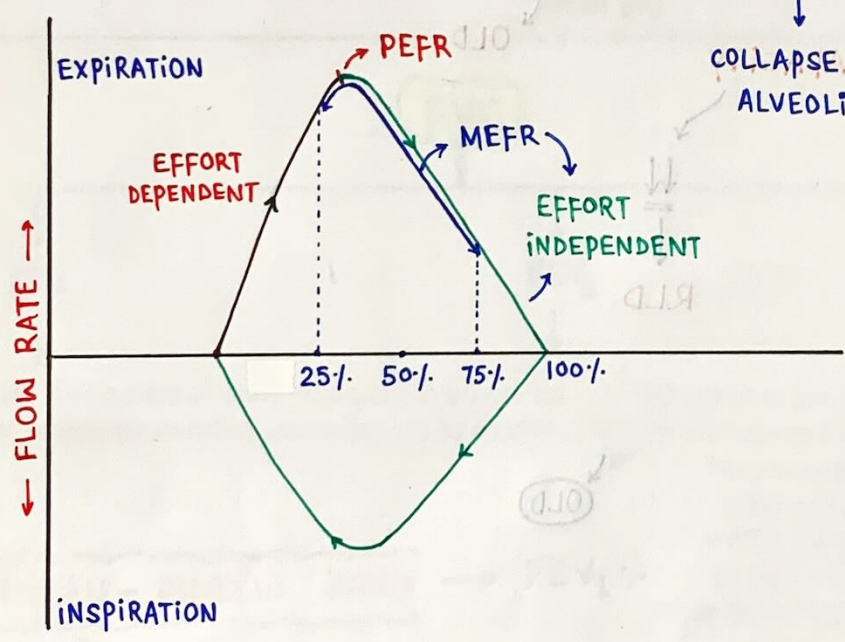 EXPIRATION
PEFR
COLLAPSE
ALVEOLI
MEFR
EFFORT
DEPENDENT
EFFORT
INDEPENDENT
← FLOW RATE →
25%
50%
75%
100%
INSPIRATION
OLD
RLD
OLD